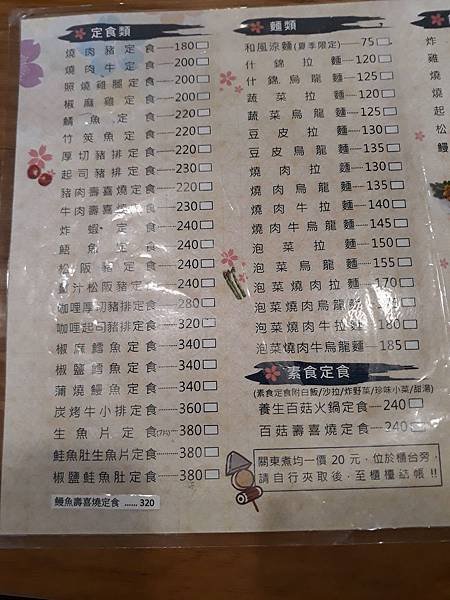 定食類
燒肉豬定食 180
燒肉牛定食 200
照燒雞腿定食 200
椒麻雞定食 200
鯖魚定食 220
竹筴魚定食 220
厚切豬排定食 220
起司豬排定食 230
豬肉壽喜燒定食 220
牛肉壽喜燒定食 230
炸蝦定食 240
魚定食 240
松阪豬定食 240
汁松阪豬定食 240
咖哩厚切豬排定食 280
咖哩起司豬排定食 320
椒麻鱈魚定食 340
椒鹽鱈魚定食 340
蒲燒鰻魚定食 340
炭烤牛小排定食 360
生魚片定食(7片) 380
鮭魚肚生魚片定食 380
椒鹽鮭魚肚定食 380
鰻魚壽喜燒定食 ...... 320
麵類
和風涼麵(夏季限定) 75
什錦拉麵 120
什錦烏龍麵 125
蔬菜拉麵 120
蔬菜烏龍麵 125
豆皮拉麵 130
豆皮烏龍麵 135
燒肉拉麵 130
燒肉烏龍麵 135
燒肉牛拉麵 140
燒肉牛烏龍麵 145
泡菜拉麵 150
泡菜烏龍麵 155
泡菜燒肉拉麵 170
泡菜燒肉烏龍麵 175
泡菜燒肉牛拉麵 180
泡菜燒肉牛烏龍麵 185
素食定食
(素食定食附白飯/沙拉/炸野菜/珍味小菜/甜湯)
養生百菇火鍋定食 240
百菇壽喜燒定食 240
關東煮均一價 20 元，位於櫃台旁，
請自行夾取後，至櫃檯結帳!!
炸
雞
燒
燒
起
鰻